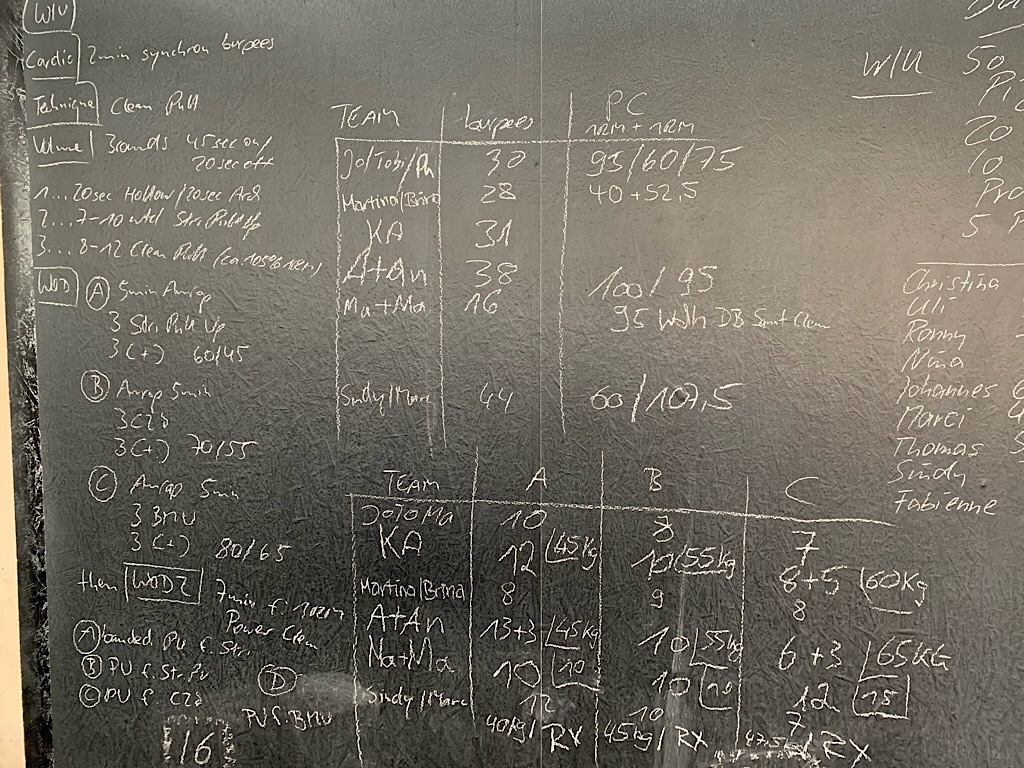 W/U
Cardio 2min synchron burpees
Technique Clean Pull
Volume 3rounds 45sec on/
20sec off
1...20sec Hollow/20sec Arch
2...7-10 Str. Pull Up
3...8-12 Clean Pull (ca 105% 1RM)
WOD A 5min Amrap
3 Str. Pull Up
3 C(+) 60/45
B Amrap 5min
3 C2B
3 C(+) 70/55
C Amrap 5min
3 BMU
3 C(+) 80/65
then WOD2 7min f. 1RM
Power Clean
A banded PU f. Str.
B PU f. Str. PU
C PU f. C2B
D PU f. BMU
16
TEAM burpees PC
1RM + 1RM
Jo/Tobi/Ph 30 95/60/75
Martina/Brina 28 40+52,5
KA 31
A+An 38 100/95
Ma+Ma 16 95 with DB Squat Clean
Sindy/Marc 44 60/107,5
TEAM A B C
JoToMa 10 8 7
KA 12 45kg 10 55kg 8+5 60kg
Martina/Brina 8 9 8
A+An 13+3 45kg 10 55kg 6+3 65KG
Na+Ma 10 10 10 10 12 15
Sindy/Marc 12 10 7
40kg/RX 45kg/RX 47,5kg/RX
W/U 50
20
10
5
Christina
Uli
Ronny
Nina
Johannes
Marci
Thomas
Sindy
Fabienne